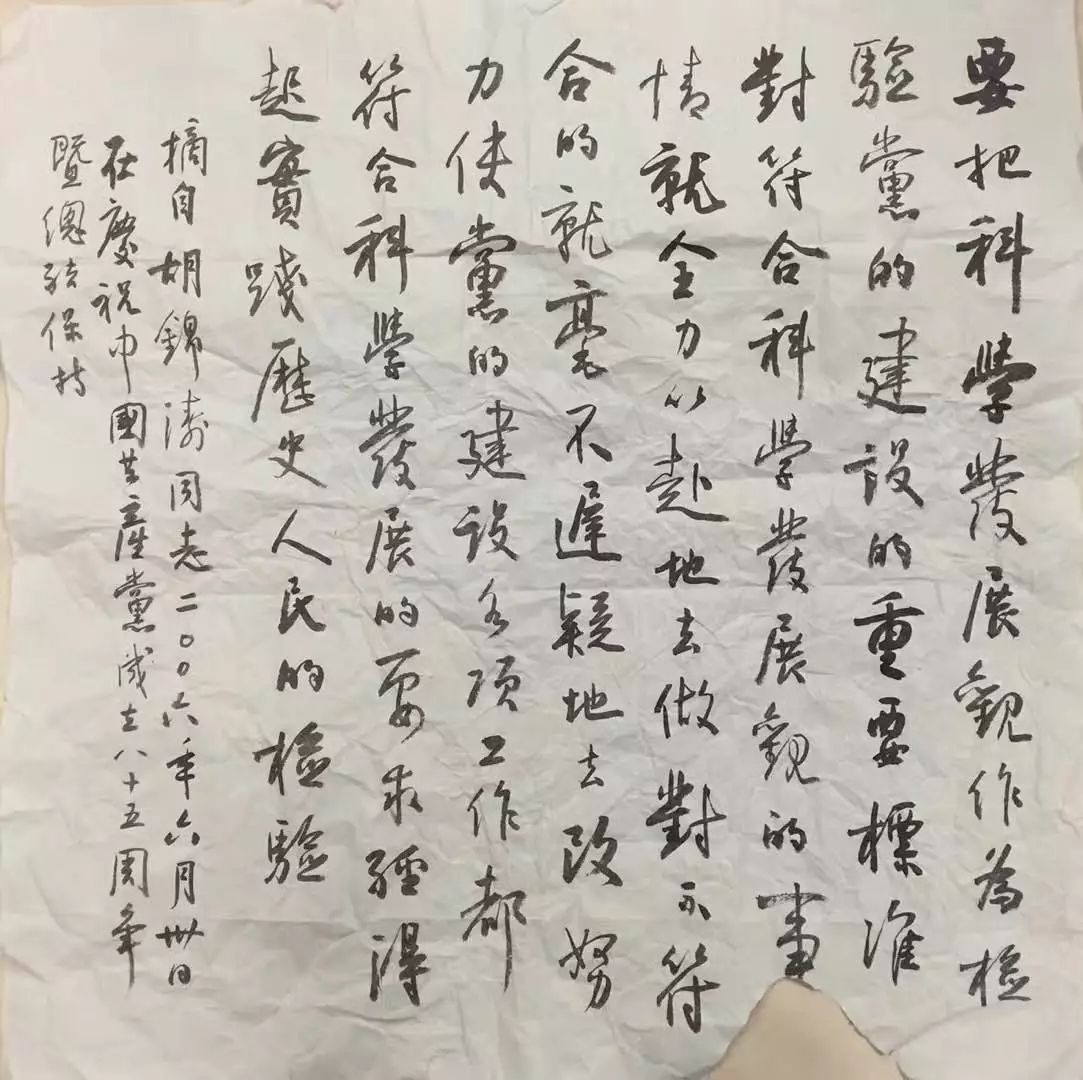 要把科學發展觀作為檢
驗黨的建設的重要標準
對符合科學發展觀的事
情就全力以赴地去做對不符
合的就毫不遲疑地去改努
力使黨的建設各項工作都
符合科學發展的要求經得
起實踐歷史人民的檢驗
摘自胡錦濤同志二〇〇六年六月卅日
在慶祝中國共產黨成立八十五周年
暨總結保持